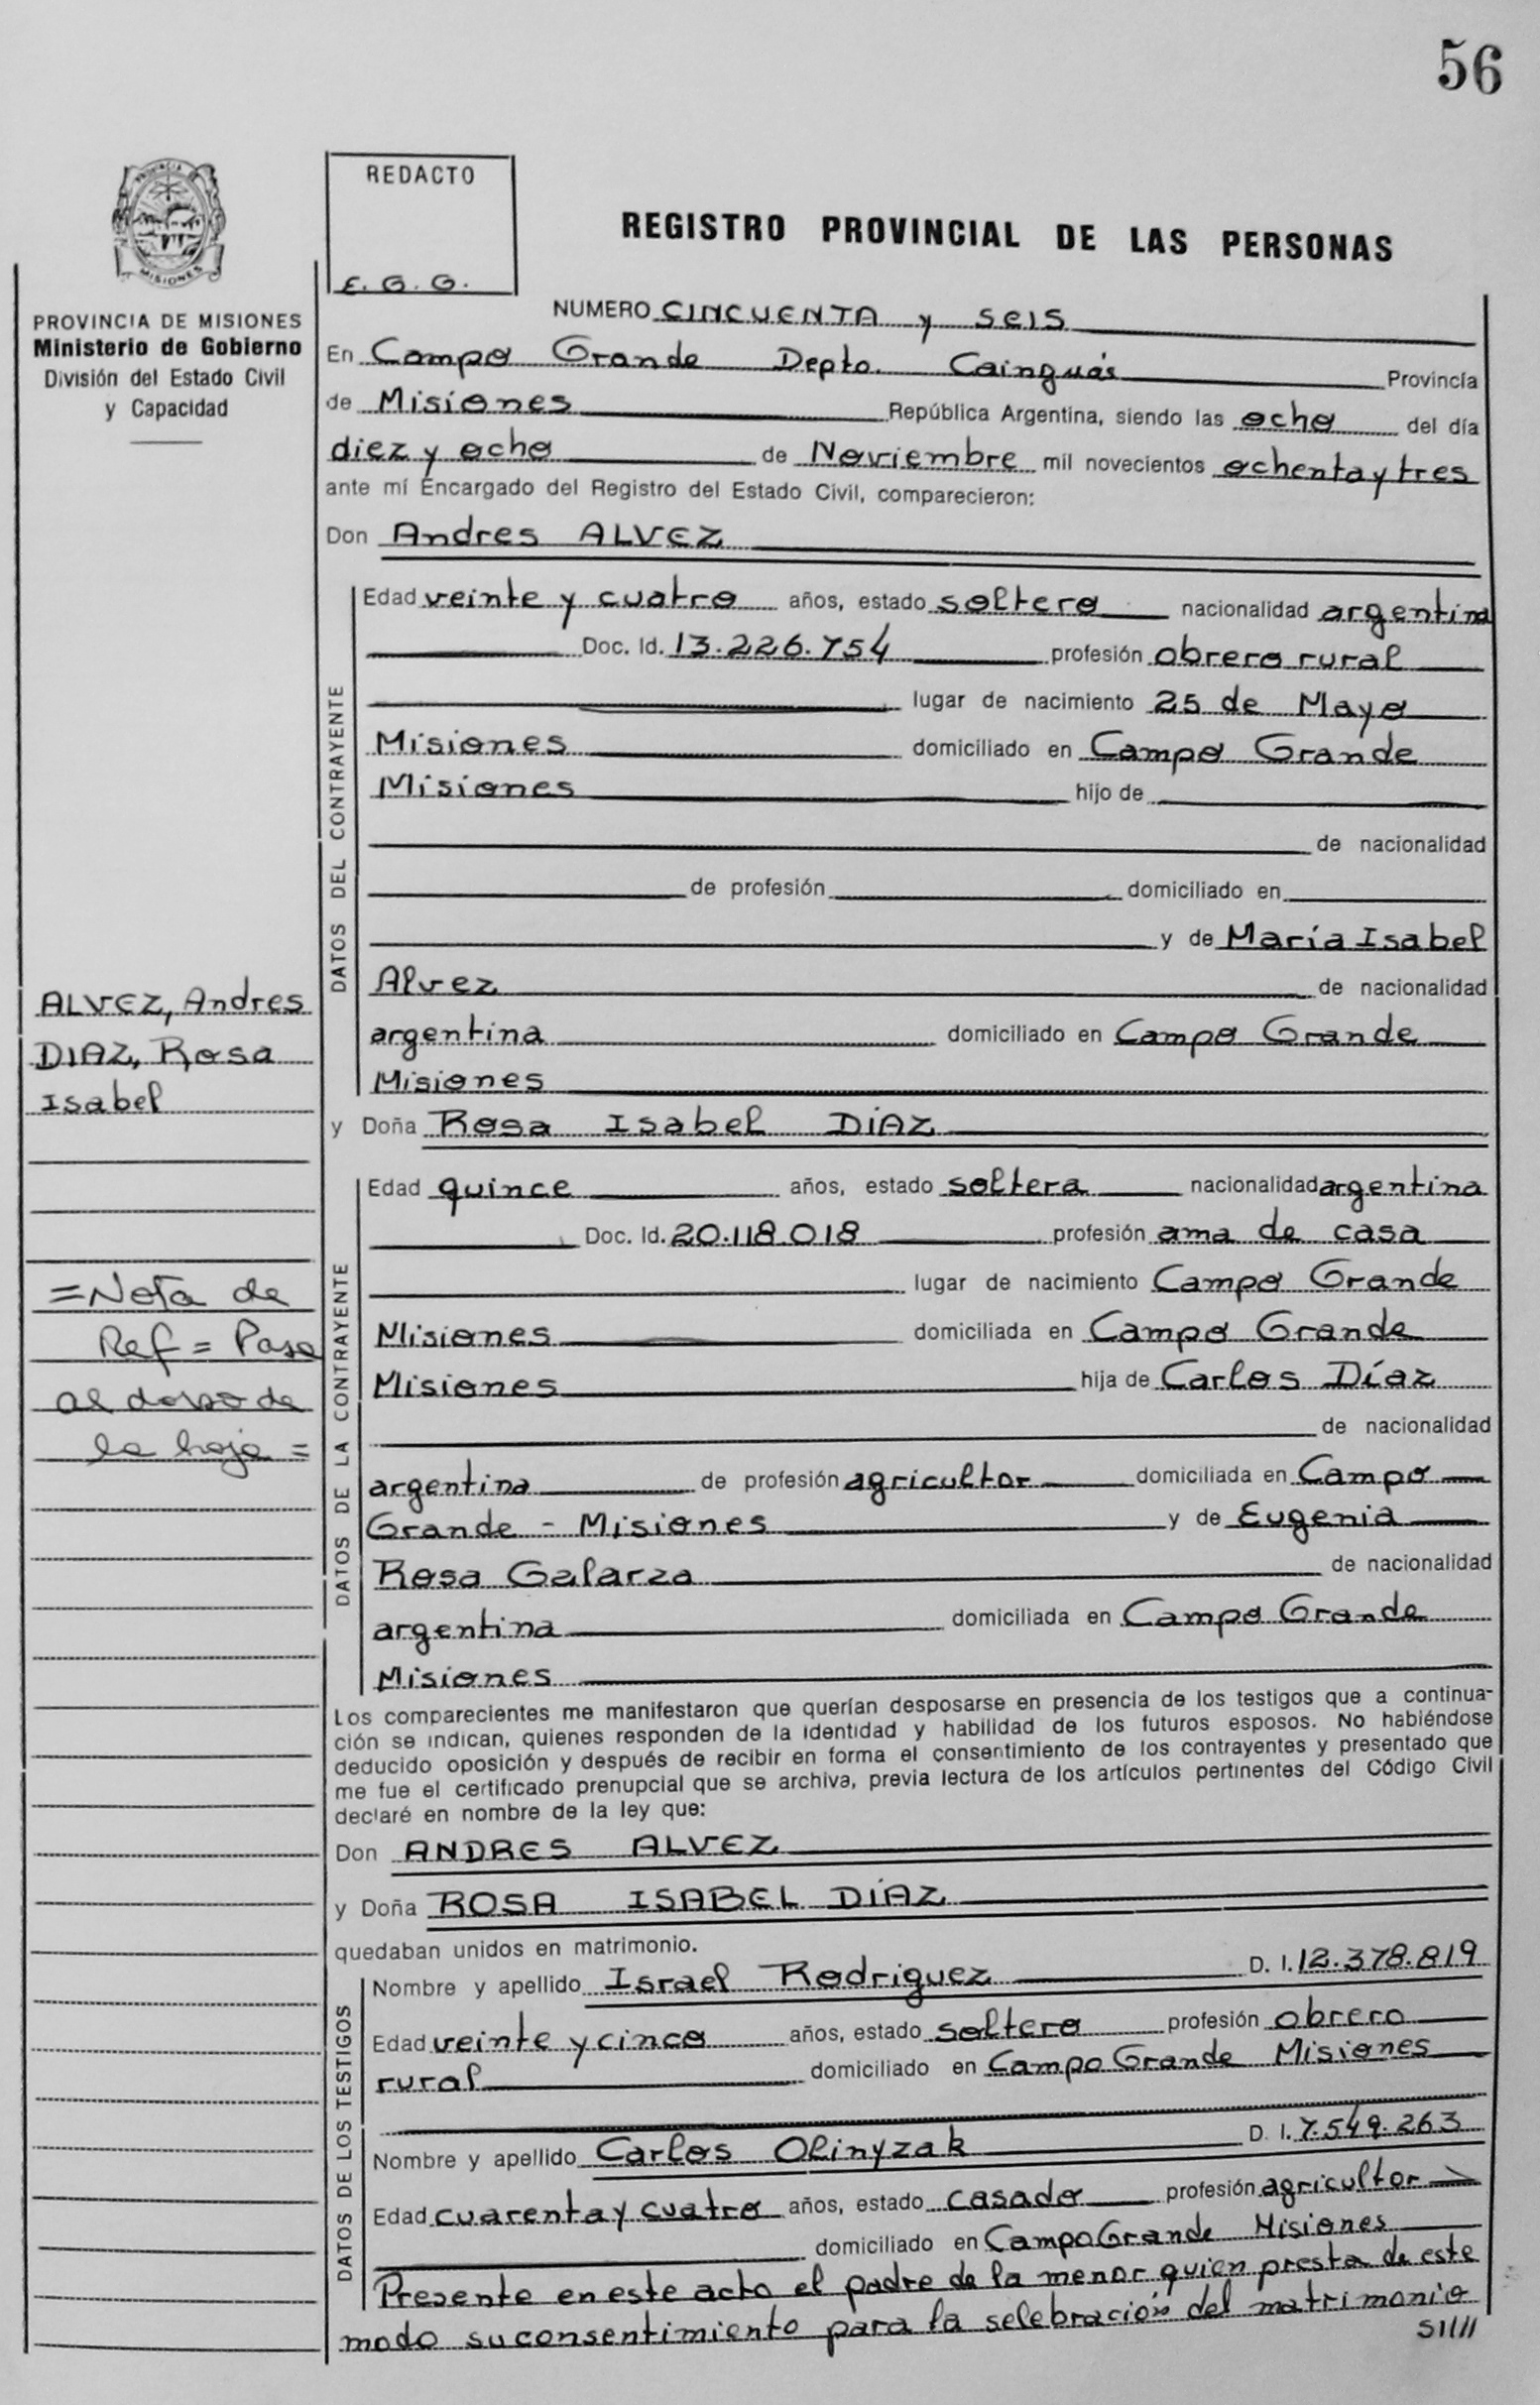 56
PROVINCIA
MISIONES
PROVINCIA DE MISIONES
Ministerio de Gobierno
División del Estado Civil
y Capacidad
REDACTO
E. G. G.
REGISTRO PROVINCIAL DE LAS PERSONAS
NUMERO CINCUENTA y seis
En Campo Grande Depto. Cainguás Provincia
de Misiones República Argentina, siendo las ocho del día
diez y ocho de Noviembre mil novecientos ochenta y tres
ante mí Encargado del Registro del Estado Civil, comparecieron:
Don Andres ALVEZ
DATOS DEL CONTRAYENTE
Edad veinte y cuatro años, estado soltero nacionalidad argentina
Doc. Id. 13.226.754 profesión obrero rural
lugar de nacimiento 25 de Mayo
Misiones domiciliado en Campo Grande
Misiones hijo de
de nacionalidad
de profesión domiciliado en
y de María Isabel
Alvez de nacionalidad
argentina domiciliado en Campo Grande
Misiones
ALVEZ, Andres
DIAZ, Rosa
Isabel
=Nota de
Ref = Pasa
al dorso de
la hoja =
y Doña Rosa Isabel DíAZ
DATOS DE LA CONTRAYENTE
Edad quince años, estado soltera nacionalidad argentina
Doc. Id. 20.118.018 profesión ama de casa
lugar de nacimiento Campo Grande
Misiones domiciliada en Campo Grande
Misiones hija de Carlos Díaz
de nacionalidad
argentina de profesión agricultor domiciliada en Campo
Grande - Misiones y de Eugenia
Rosa Galarza de nacionalidad
argentina domiciliada en Campo Grande
Misiones
Los comparecientes me manifestaron que querían desposarse en presencia de los testigos que a continua-
ción se indican, quienes responden de la identidad y habilidad de los futuros esposos. No habiéndose
deducido oposición y después de recibir en forma el consentimiento de los contrayentes y presentado que
me fue el certificado prenupcial que se archiva, previa lectura de los artículos pertinentes del Código Civil
declaré en nombre de la ley que:
Don ANDRES ALVEZ
y Doña ROSA ISABEL DíAZ
quedaban unidos en matrimonio.
DATOS DE LOS TESTIGOS
Nombre y apellido Israel Rodriguez D. I. 12.378.819
Edad veinte y cinco años, estado soltero profesión obrero
rural domiciliado en Campo Grande Misiones
Nombre y apellido Carlos Olinyzak D. I. 7.549.263
Edad cuarenta y cuatro años, estado casado profesión agricultor
domiciliado en Campo Grande Misiones
Presente en este acto el padre de la menor quien presta de este
modo su consentimiento para la selebración del matrimonio
SI///